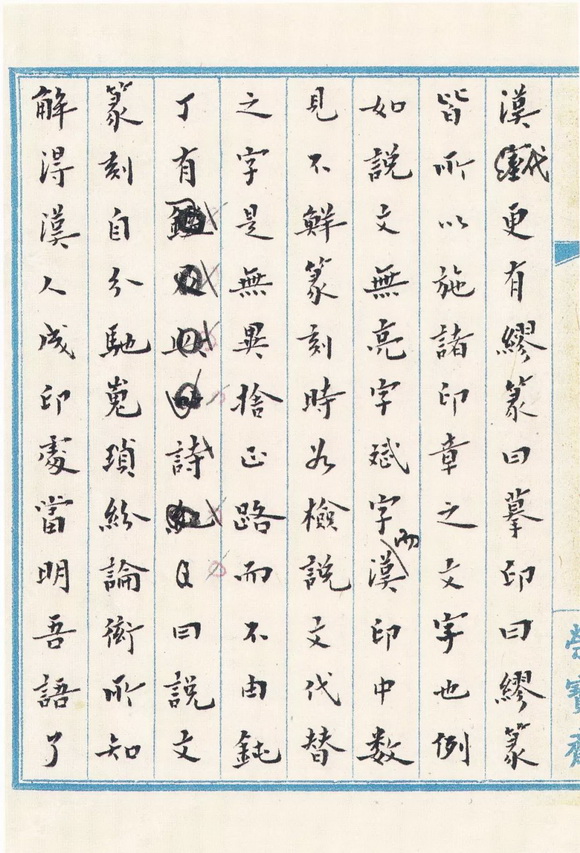 漢代更有繆篆曰摹印曰繆篆
皆所以施諸印章之文字也例
如說文無亮字斌字而漢印中数
見不鮮篆刻時檢說文代替
之字是無異捨正路而不由鈍
丁有詩曰說文
篆刻自分馳嵬瑣紛論衒所知
解得漢人成印處當明吾語了
榮寶齋